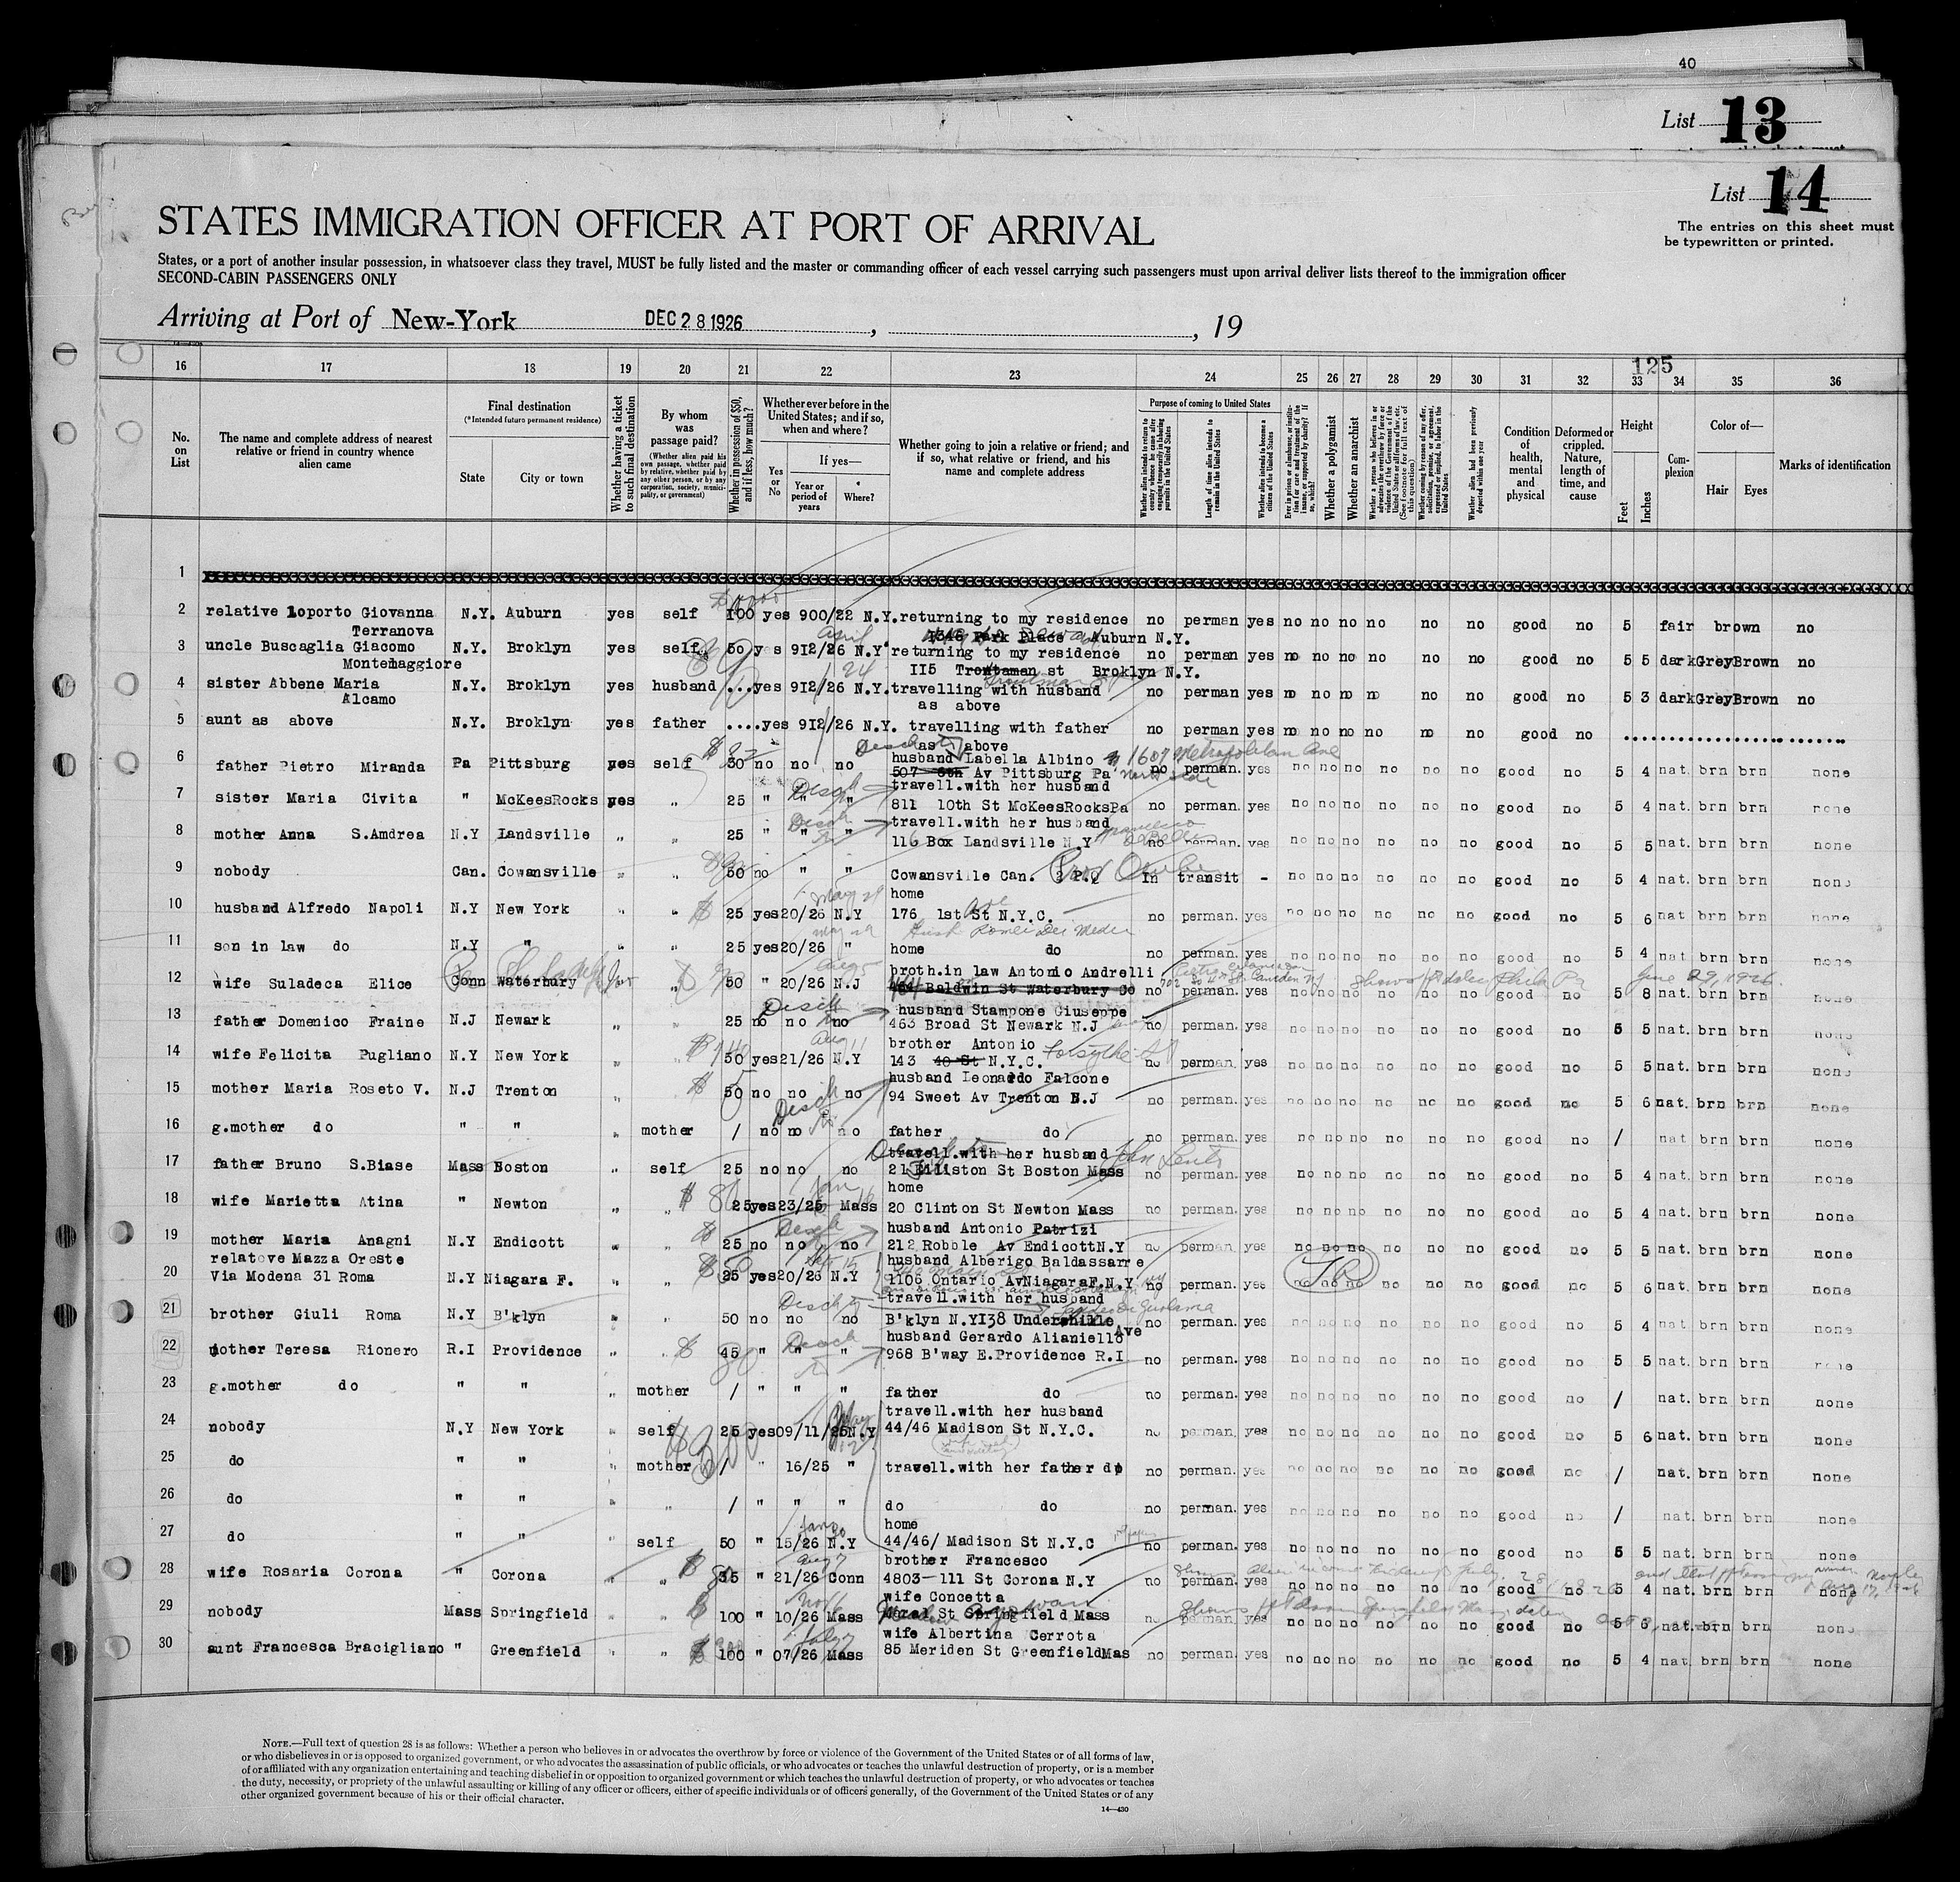 40
List 13
List 14
The entries on this sheet must
be typewritten or printed.
STATES IMMIGRATION OFFICER AT PORT OF ARRIVAL
States, or a port of another insular possession, in whatsoever class they travel, MUST be fully listed and the master or commanding officer of each vessel carrying such passengers must upon arrival deliver lists thereof to the immigration officer
SECOND-CABIN PASSENGERS ONLY
Arriving at Port of New-York DEC 28 1926 , , 19
125
16 17 18 19 20 21 22 23 24 25 26 27 28 29 30 31 32 33 34 35 36
No. on List
The name and complete address of nearest relative or friend in country whence alien came
Final destination
(*Intended future permanent residence)
State
City or town
Whether having a ticket to such final destination
By whom was passage paid?
(Whether alien paid his own passage, whether paid by relative, whether paid by any other person, or by any corporation, society, municipality, or government)
Whether in possession of $50, and if less, how much?
Whether ever before in the United States; and if so, when and where?
Yes or No
If yes—
Year or period of years
Where?
Whether going to join a relative or friend; and if so, what relative or friend, and his name and complete address
Purpose of coming to United States
Whether alien intends to return to country whence he came after engaging temporarily in laboring pursuits in the United States
Length of time alien intends to remain in the United States
Whether alien intends to become a citizen of the United States
Ever in prison or almshouse, or institution for care and treatment of the insane, or supported by charity? If so, which?
Whether a polygamist
Whether an anarchist
Whether a person who believes in or advocates the overthrow by force or violence of the Government of the United States or all forms of law, etc. (See footnote for full text of this question)
Whether coming by reason of any offer, solicitation, promise, or agreement, expressed or implied, to labor in the United States
Whether alien had been previously deported within one year
Condition of health, mental and physical
Deformed or crippled. Nature, length of time, and cause
Height
Feet
Inches
Complexion
Color of—
Hair
Eyes
Marks of identification
1
2 relative loporto Giovanna N.Y. Auburn yes self 100 yes 900/22 N.Y. returning to my residence no perman yes no no no no no no good no 5 fair brown no
Terranova Park Place Auburn N.Y.
3 uncle Buscaglia Giacomo N.Y. Broklyn yes self 50 yes 9I2/26 N.Y. returning to my residence no perman yes no no no no no no good no 5 5 dark Grey Brown no
Montemaggiore II5 Troutaman st Broklyn N.Y.
4 sister Abbene Maria N.Y. Broklyn yes husband ... yes 9I2/26 N.Y. travelling with husband no perman yes no no no no no no good no 5 3 dark Grey Brown no
Alcamo as above
5 aunt as above N.Y. Broklyn yes father .... yes 9I2/26 N.Y. travelling with father no perman yes no no no no no no good no
as above
husband Labella Albino 1607 Metropolitan Ave
6 father Pietro Miranda Pa Pittsburg yes self 30 no no no 507 6th Av Pittsburg Pa no perman. yes no no no no no no good no 5 4 nat. brn brn none
travell.with her husband
7 sister Maria Civita " McKeesRocks yes " 25 " " " 811 10th St McKeesRocksPa no perman. yes no no no no no no good no 5 4 nat. brn brn none
travell.with her husband
8 mother Anna S.Amdrea N.Y Landsville " " 25 " " " 116 Box Landsville N.Y no perman. yes no no no no no no good no 5 5 nat. brn brn none
9 nobody Can. Cowansville " " 50 no " " Cowansville Can. P.Q In transit - no no no no no no good no 5 4 nat. brn brn none
home
10 husband Alfredo Napoli N.Y New York " " 25 yes 20/26 N.Y 176 1st St N.Y.C. no perman. yes no no no no no no good no 5 6 nat brn brn none
11 son in law do N.Y " " " 25 yes 20/26 " home do no perman. yes no no no no no no good no 5 4 nat. brn brn none
broth.in law Antonio Andrelli
12 wife Suladeca Elice Conn Waterbury " 50 " 20/26 N.J Baldwin St Waterbury Co no perman. yes no no no no no no good no 5 8 nat. brn brn none
June 29, 1926
husband Stampone Giuseppe
13 father Domenico Fraine N.J Newark " " 25 no no no 463 Broad St Newark N.J no perman. yes no no no no no no good no 5 5 nat. brn brn none
brother Antonio
14 wife Felicita Pugliano N.Y New York " " 50 yes 21/26 N.Y 143 40 St N.Y.C. Forsythe St no perman. yes no no no no no no good no 5 5 nat. brn brn none
husband Leonardo Falcone
15 mother Maria Roseto V. N.J Trenton " 50 no no no 94 Sweet Av Trenton N.J no perman. yes no no no no no no good no 5 6 nat. brn brn none
16 g.mother do " " " mother / no no no father do no perman. yes no no no no no no good no / nat brn brn none
travell.with her husband
17 father Bruno S.Biase Mass Boston " self 25 no no no 21 Elliston St Boston Mass no perman. yes no no no no no no good no 5 4 nat. brn brn none
home
18 wife Marietta Atina " Newton " " 25 yes 23/25 Mass 20 Clinton St Newton Mass no perman. yes no no no no no no good no 5 4 nat. brn brn none
husband Antonio Patrizi
19 mother Maria Anagni N.Y Endicott " " 25 no no no 212 Robble Av Endicott N.Y no perman. yes no no no no no no good no 5 5 nat. brn brn none
relatove Mazza Oreste husband Alberigo Baldassarre
20 Via Modena 31 Roma N.Y Niagara F. " " 25 yes 20/26 N.Y 1106 Ontario Av Niagara F.N.Y no perman. yes no no no no no no good no 5 6 nat. brn brn none
travell.with her husband
21 brother Giuli Roma N.Y B'klyn " " 50 no no no B'klyn N.Y I38 Undershille Ave no perman. yes no no no no no no good no 5 4 nat. brn brn none
husband Gerardo Alianiello
22 mother Teresa Rionero R.I Providence " " 45 " " " 968 B'way E.Providence R.I no perman. yes no no no no no no good no 5 5 nat. brn brn none
23 g.mother do " " " mother / " " " father do no perman. yes no no no no no no good no / nat. brn brn none
travell.with her husband
24 nobody N.Y New York " self 25 yes 09/11/25 N.Y 44/46 Madison St N.Y.C. no perman. yes no no no no no no good no 5 6 nat. brn brn none
25 do " " " mother / " 16/25 " travell.with her father do no perman. yes no no no no no no good no / nat. brn brn none
26 do " " " " / " " " do do no perman. yes no no no no no no good no / nat. brn brn none
home
27 do " " " self 50 " 15/26 N.Y 44/46/ Madison St N.Y.C no perman. yes no no no no no no good no 5 5 nat. brn brn none
brother Francesco
28 wife Rosaria Corona " Corona " " 35 " 21/26 Conn 4803-111 St Corona N.Y no perman. yes no no no no no no good no 5 4 nat. brn brn none
wife Concetta
29 nobody Mass Springfield " " 100 " 10/26 Mass St Springfield Mass no perman. yes no no no no no no good no 5 6 nat. brn brn none
wife Albertina Cerrota
30 aunt Francesca Bracigliano " Greenfield " " 100 " 07/26 Mass 85 Meriden St Greenfield Mas no perman. yes no no no no no no good no 5 4 nat. brn brn none
NOTE.—Full text of question 28 is as follows: Whether a person who believes in or advocates the overthrow by force or violence of the Government of the United States or of all forms of law,
or who disbelieves in or is opposed to organized government, or who advocates the assassination of public officials, or who advocates or teaches the unlawful destruction of property, or is a member
of or affiliated with any organization entertaining and teaching disbelief in or opposition to organized government or which teaches the unlawful destruction of property, or who advocates or teaches
the duty, necessity, or propriety of the unlawful assaulting or killing of any officer or officers, either of specific individuals or of officers generally, of the Government of the United States or of any
other organized government because of his or their official character.
14—430